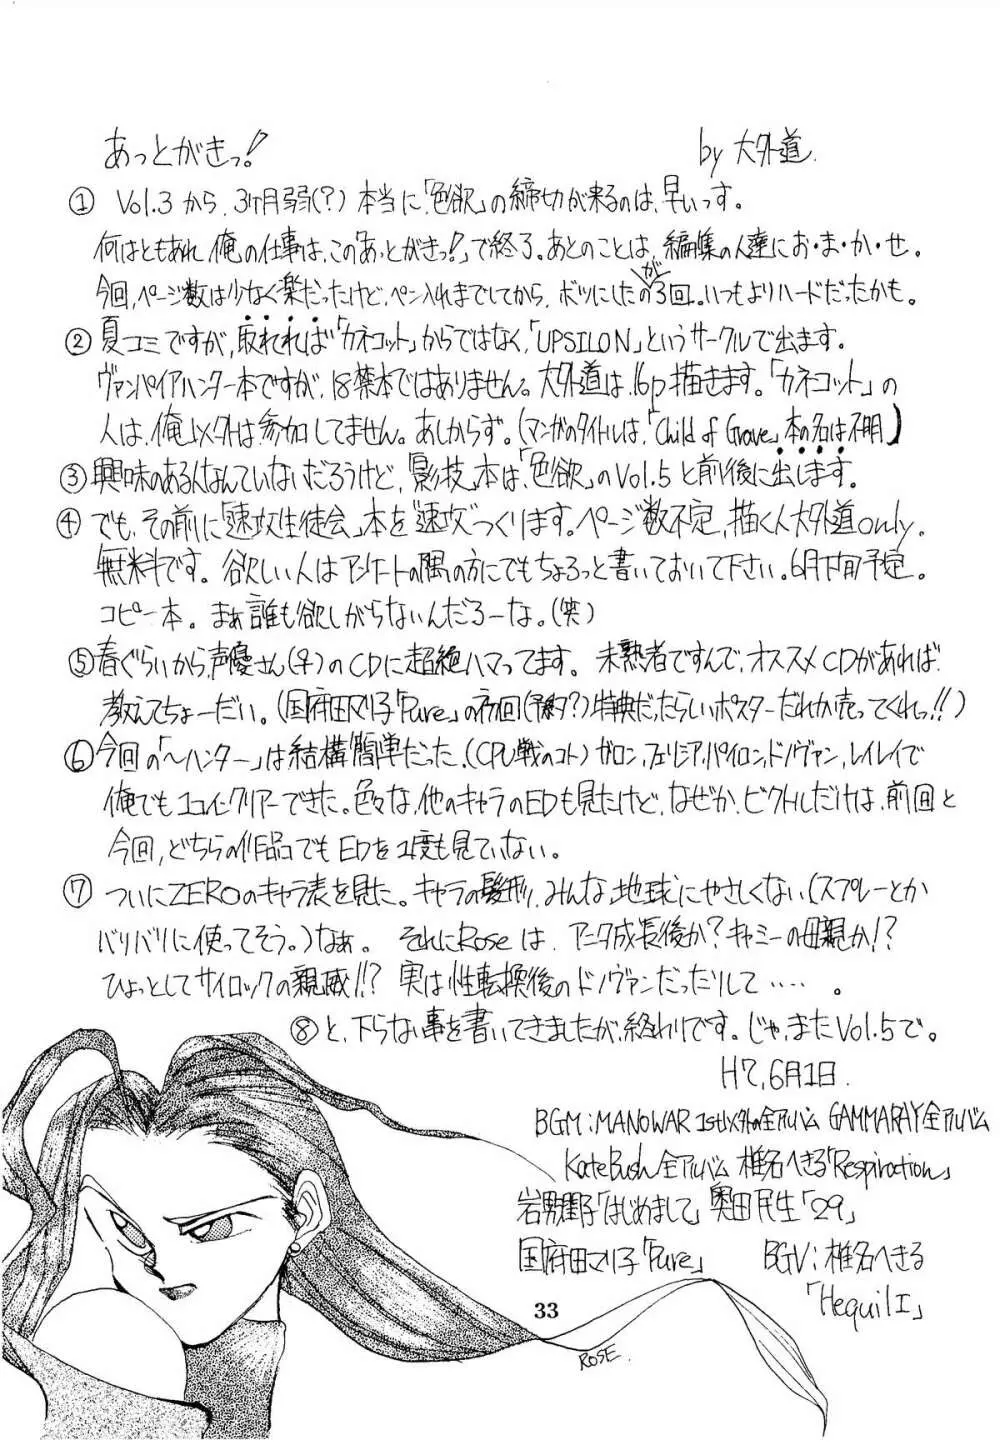 あっとがきっ! by 大外道.
① Vol.3 から、3ヶ月弱(?) 本当に「色欲」の締切が来るのは、早いっす。
何はともあれ、俺の仕事は、この「あっとがきっ!」で終了。あとのことは、編集の人達にお・ま・か・せ。
今回、ページ数は少なく楽だったけど、ペン入れまでしてから、ボツにしたのが3回。いつもよりハードだったかも。
② 夏コミですが、取れてれば「カネコット」からではなく、「UPSILON」というサークルで出ます。
ヴァンパイアハンター本ですが、18禁本ではありません。大外道は、16p描きます。「カネコット」の
人は、俺以外は参加してません。あしからず。(マンガのタイトルは、「Child of Grave」本の名は不明)
③ 興味のある人なんていないだろうけど、「影技」本は、「色欲」のVol.5 と前後に出します。
④ でも、その前に「速攻生徒会」本を“速攻”つくります。ページ数不定、描く人大外道only.
無料です。欲しい人はアンケートの隅の方にでもちょろっと書いておいて下さい。6月下旬予定。
コピー本。まぁ誰も欲しがらないんだろーな。(笑)
⑤ 春ぐらいから、声優さん(♀)のCDに超絶ハマってます。未熟者ですんで、オススメCDがあれば
教えてちょーだい。(国府田マリ子「Pure」の初回(予約?)特典だったらしいポスターだれか売ってくれっ!!)
⑥ 今回の「〜ハンター」は結構簡単だった。(CPU戦のコト)ガロン,フェリシア,パイロン,ドノヴァン,レイレイで
俺でも1コインクリアーできた。色々な、他のキャラのEDも見たけど、なぜか、ビクトルだけは、前回と
今回、どちらの作品でもEDを1度も見ていない。
⑦ ついにZEROのキャラ表を見た。キャラの髪形、みんな地球にやさしくない(スプレーとか
バリバリに使ってそう。)なぁ。それにRoseは、アニタ成長後か?キャミーの母親か!?
ひょっとしてサイロックの親戚!!? 実は性転換後のドノヴァンだったりして‥‥‥。
⑧ と、下らない事を書いてきましたが、終わりです。じゃ、またVol.5で。
H7,6月1日.
BGM:MANOWAR 1st以外の全アルバム GAMMARAY全アルバム
KateBush全アルバム 椎名へきる「Respiration」
岩男潤子「はじめまして」 奥田民生「29」
国府田マリ子「Pure」 BGV:椎名へきる
「Hequil I」
33
ROSE.